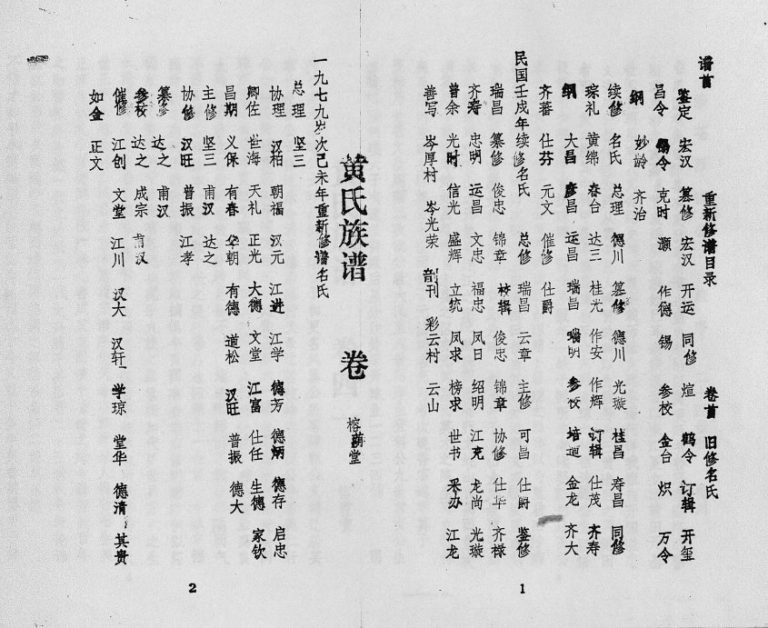 谱首 重新修谱目录 卷首 旧修名氏
鉴定 宏汉 纂修 宏汉 开运 同修 煊 鹤令 订辑 开玺
昌令 锡令 克时 灏 作德 锡 参校 金台 炽 万令
纲 妙龄 齐治
续修 名氏 总理 德川 纂修 德川 光璇 桂昌 寿昌 同修
琮礼 黄绵 春台 达三 桂光 作安 作辉 订辑 仕茂 齐寿
纲 大昌 彦昌 运昌 瑞昌 明 参校 培 金龙 齐大
齐蕃 仕芬 元文 催修 仕爵
民国壬戌年续修名氏 总修 瑞昌 云章 主修 可昌 仕爵 鉴修
瑞昌 纂修 俊忠 锦章 校辑 俊忠 锦章 协修 仕华 齐禄
齐寿 忠明 运昌 文忠 福忠 凤日 绍明 江克 龙尚 光璇
普余 光时 信光 盛辉 立统 凤求 榜求 世书 采办 江龙
善写 岑厚村 岑光荣 刊 彩云村 云山
1
黄氏族谱 卷 榕荫堂
一九七九岁次己未年重新修谱名氏
总理 坚三
协理 汉柏 朝福 汉元 江进 江学 德芳 德炳 德存 启忠
卿佐 世海 天礼 正光 大德 文堂 江富 仕任 生德 家钦
昌期 义保 有春 华朝 有德 道松 汉旺 普振 德大
主修 坚三 甫汉 达之
协修 汉旺 普振 江孝
纂修 达之 甫汉
参校 达之 成宗 甫汉
催修 江创 文堂 江川 汉大 汉轩 学琼 堂华 德清 其贵
如金 正文
2